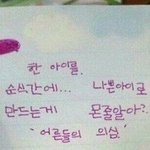 한 아이를
순식간에... 나쁜아이로
만드는게 몬줄알아?
"어른들의 의심"